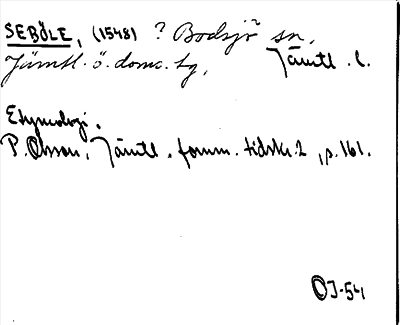 SEBÖLE, (1548) ? Bodsjö sn,
Jämtl. ö. doms. tg, Jämtl. l.
Etymologi.
P. Olsson, Jämtl. fornm. tidskr. 2, s. 161.
OJ-54